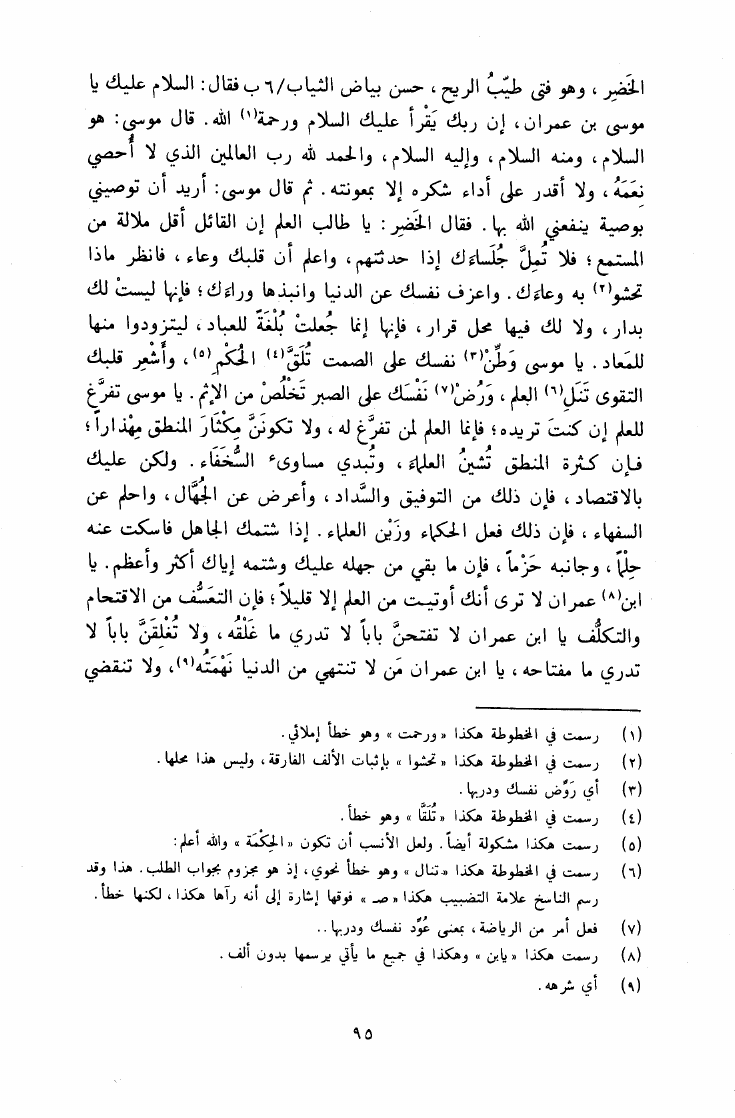 الخَضِر ، وهو فتى طيّبُ الريح ، حسن بياض الثياب/٦ ب فقال: السلام عليك يا
موسى بن عمران، إن ربك يَقْرأ عليك السلام ورحمة(١) الله. قال موسى: هو
السلام، ومنه السلام، وإليه السلام، والحمد لله رب العالمين الذي لا أُحصي
نِعَمَهُ، ولا أقدر على أداء شكره إلا بمعونته. ثم قال موسى: أريد أن توصيني
بوصية ينفعني الله بها. فقال الخَضِر: يا طالب العلم إن القائل أقل ملالة من
المستمع؛ فلا تُمِلَّ جُلَساءَك إذا حدثتهم، واعلم أن قلبك وعاء، فانظر ماذا
تحشو(٢) به وعاءك. واعزف نفسك عن الدنيا وانبذها وراءك؛ فإنها ليستْ لك
بدار، ولا لك فيها محل قرار، فإنها إنما جُعلتْ بُلْغَةً للعباد، ليتزودوا منها
للمَعاد. يا موسى وَطِّنْ(٣) نفسك على الصمت تُلَقَّ(٤) الحُكْمِ(٥)، وأَشْعِر قلبك
التقوى تَنَلِ(٦) العلم، وَرُضْ(٧) نَفْسَك على الصبر تَخْلُصْ من الإثم. يا موسى تفرَّغ
للعلم إن كنتَ تريده؛ فإنما العلم لمن تفرَّغ له، ولا تكونَنَّ مِكْثَارَ المنطق مِهْذاراً؛
فإن كثرة المنطق تُشينُ العلماءَ، وتُبدي مساوىء السُّخَفَاء. ولكن عليك
بالاقتصاد، فإن ذلك من التوفيق والسَّداد، وأعرض عن الجُهَّال، واحلم عن
السفهاء، فإن ذلك فعل الحكماء وزَيْن العلماء. إذا شتمك الجاهل فاسكت عنه
حِلْماً، وجانبه حَزْماً، فإن ما بقي من جهله عليك وشتمه إياك أكثر وأعظم. يا
ابن(٨) عمران لا ترى أنك أوتيت من العلم إلا قليلاً؛ فإن التعَسُّف من الاقتحام
والتكلُّف يا ابن عمران لا تفتحنَّ باباً لا تدري ما غَلْقُه، ولا تُغْلِقَنَّ باباً لا
تدري ما مفتاحه، يا ابن عمران مَن لا تنتهي من الدنيا نَهْمَتُه(٩)، ولا تنقضي
(١) رسمت في المخطوطة هكذا «ورحمت» وهو خطأ إملائي.
(٢) رسمت في المخطوطة هكذا «تحشوا» بإثبات الألف الفارقة، وليس هذا محلها.
(٣) أي رَوِّض نفسك ودربها.
(٤) رسمت في المخطوطة هكذا «تُلَقَّا» وهو خطأ.
(٥) رسمت هكذا مشكولة أيضاً. ولعل الأنسب أن تكون «الحِكْمَة» والله أعلم:
(٦) رسمت في المخطوطة هكذا «تنال» وهو خطأ نحوي، إذ هو مجزوم بجواب الطلب. هذا وقد
رسم الناسخ علامة التضبيب هكذا «صـ» فوقها إشارة إلى أنه رآها هكذا، لكنها خطأ.
(٧) فعل أمر من الرياضة، بمعنى عَوِّد نفسك ودربها..
(٨) رسمت هكذا «يابن» وهكذا في جميع ما يأتي يرسمها بدون ألف.
(٩) أي شرهه.
٩٥